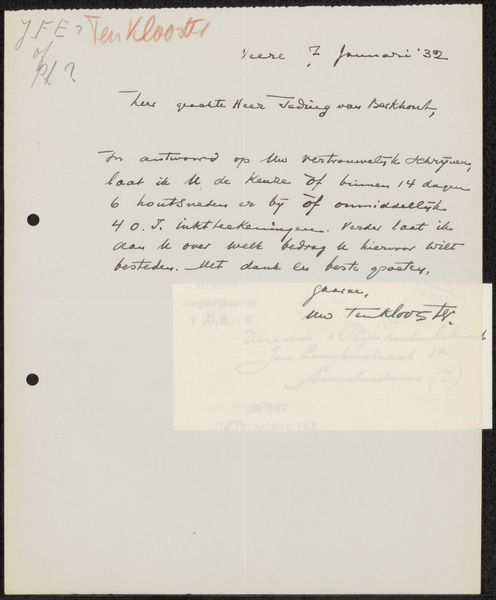 J.F.E?
of
Ph?
Ten Klooster
Veere 7 Januari '32
Zeer geachte Heer Teding van Berkhout,
In antwoord op Uw vertrouwelijk schrijven,
laat ik U de keuze óf binnen 14 dagen
6 houtsneden er bij óf onmiddellijk
4 O.I. inktteekeningen. Verder laat ik
dan U over welk bedrag U hiervoor wilt
besteden. Met dank en beste groeten,
gaarne,
Uw Ten Klooster.
Departement
v. O.K. W.
Amsterdam (Z)